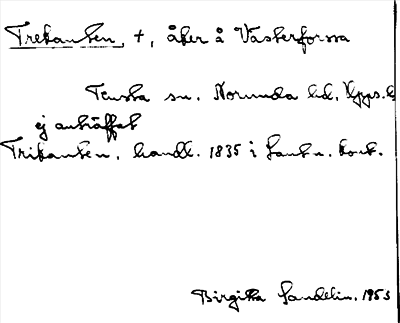 Trekanten, +, åker å Västerforssa
Tensta sn. Norunda hd, Upps. l.
ej anträffat
Trikanten, handl. 1835 i Lantm. kont.
Birgitta Sandelin. 1953